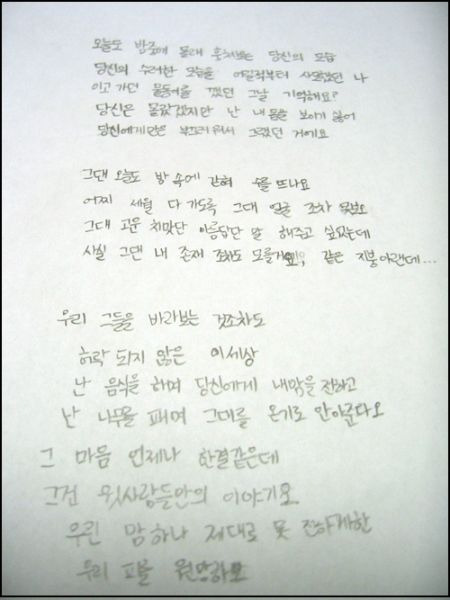 오늘도 밤중에 몰래 훔쳐보는 당신의 모습
당신의 수려한 모습을 어릴적부터 사모했던 나
이고 가던 물동이를 깼던 그날 기억해요?
당신은 몰랐겠지만 난 내 몸을 보이기 싫어
당신에게만은 부끄러워서 그랬던 거에요
그댄 오늘도 방 속에 갇혀 수를 뜨나요
어찌 세월 다 가도록 그대 얼굴 조차 못보오
그대 고운 치맛단 아름답단 말 해주고 싶었는데
사실 그댄 내 존재 조차도 모를거요, 같은 지붕아랜데...
우리 그들을 바라보는 것조차도
허락 되지 않은 이세상
난 음식을 하며 당신에게 내맘을 전하고
난 나무를 패며 그대를 온기로 안아준다오
그 마음 언제나 한결같은데
그건 윗사람들만의 이야기요
우린 맘 하나 제대로 못 전하게한
우리 피를 원망하오